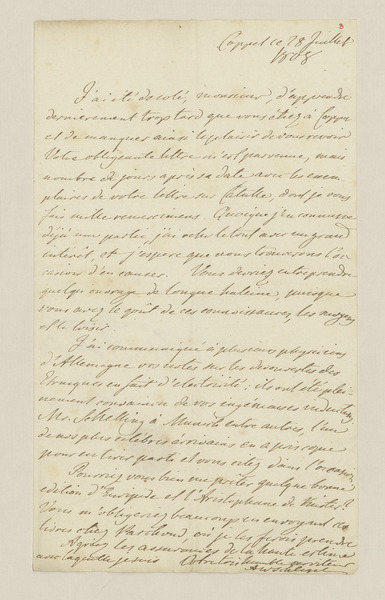 3
Coppet ce 28 Juillet
1808
J'ai été désolé, monsieur, d'apprendre
dernierement trop tard que vous étiez à
et de manquer ainsi le plaisir de vous revoir
Votre obligeante lettre m'est parvenue, mais
nombre de jours après sa date avec les exem
plaires de votre lettre sur Catulle, dont je vous
fais mille remercimens. Quoique j'en connusse
déjà une partie, j'ai relu le tout avec un grand
intérêt, et j'espere que nous trouverons l'oc
casion d'en causer. Vous devriez entreprendre
quelqu'ouvrage de longue haleine, puisque
vous avez le goût de ces connaissances, les moyens
et le loisir.
J'ai communiqué à plusieurs physiciens
d'Allemagne vos notes sur les découvertes des
Etrusques en fait d'électricité: ils ont été plei
nement convaincus de vos ingénieuses
Mr. Schelling à Munich entre autres, l'un
de nos plus célebres écrivains en a
pour en tirer parti et vous citer dans l'occasion
Pourriez vous bien me preter quelque bonne
edition d'Euripide et l'Aristophane de Kuster?
Vous m'obligeriez beaucoup en envoyant ces
livres chez Paschoud, où je les ferois prendre
Agréez les assurances de la haute estime
avec laquelle je suis Votre très humble serviteur
AWSchlegel